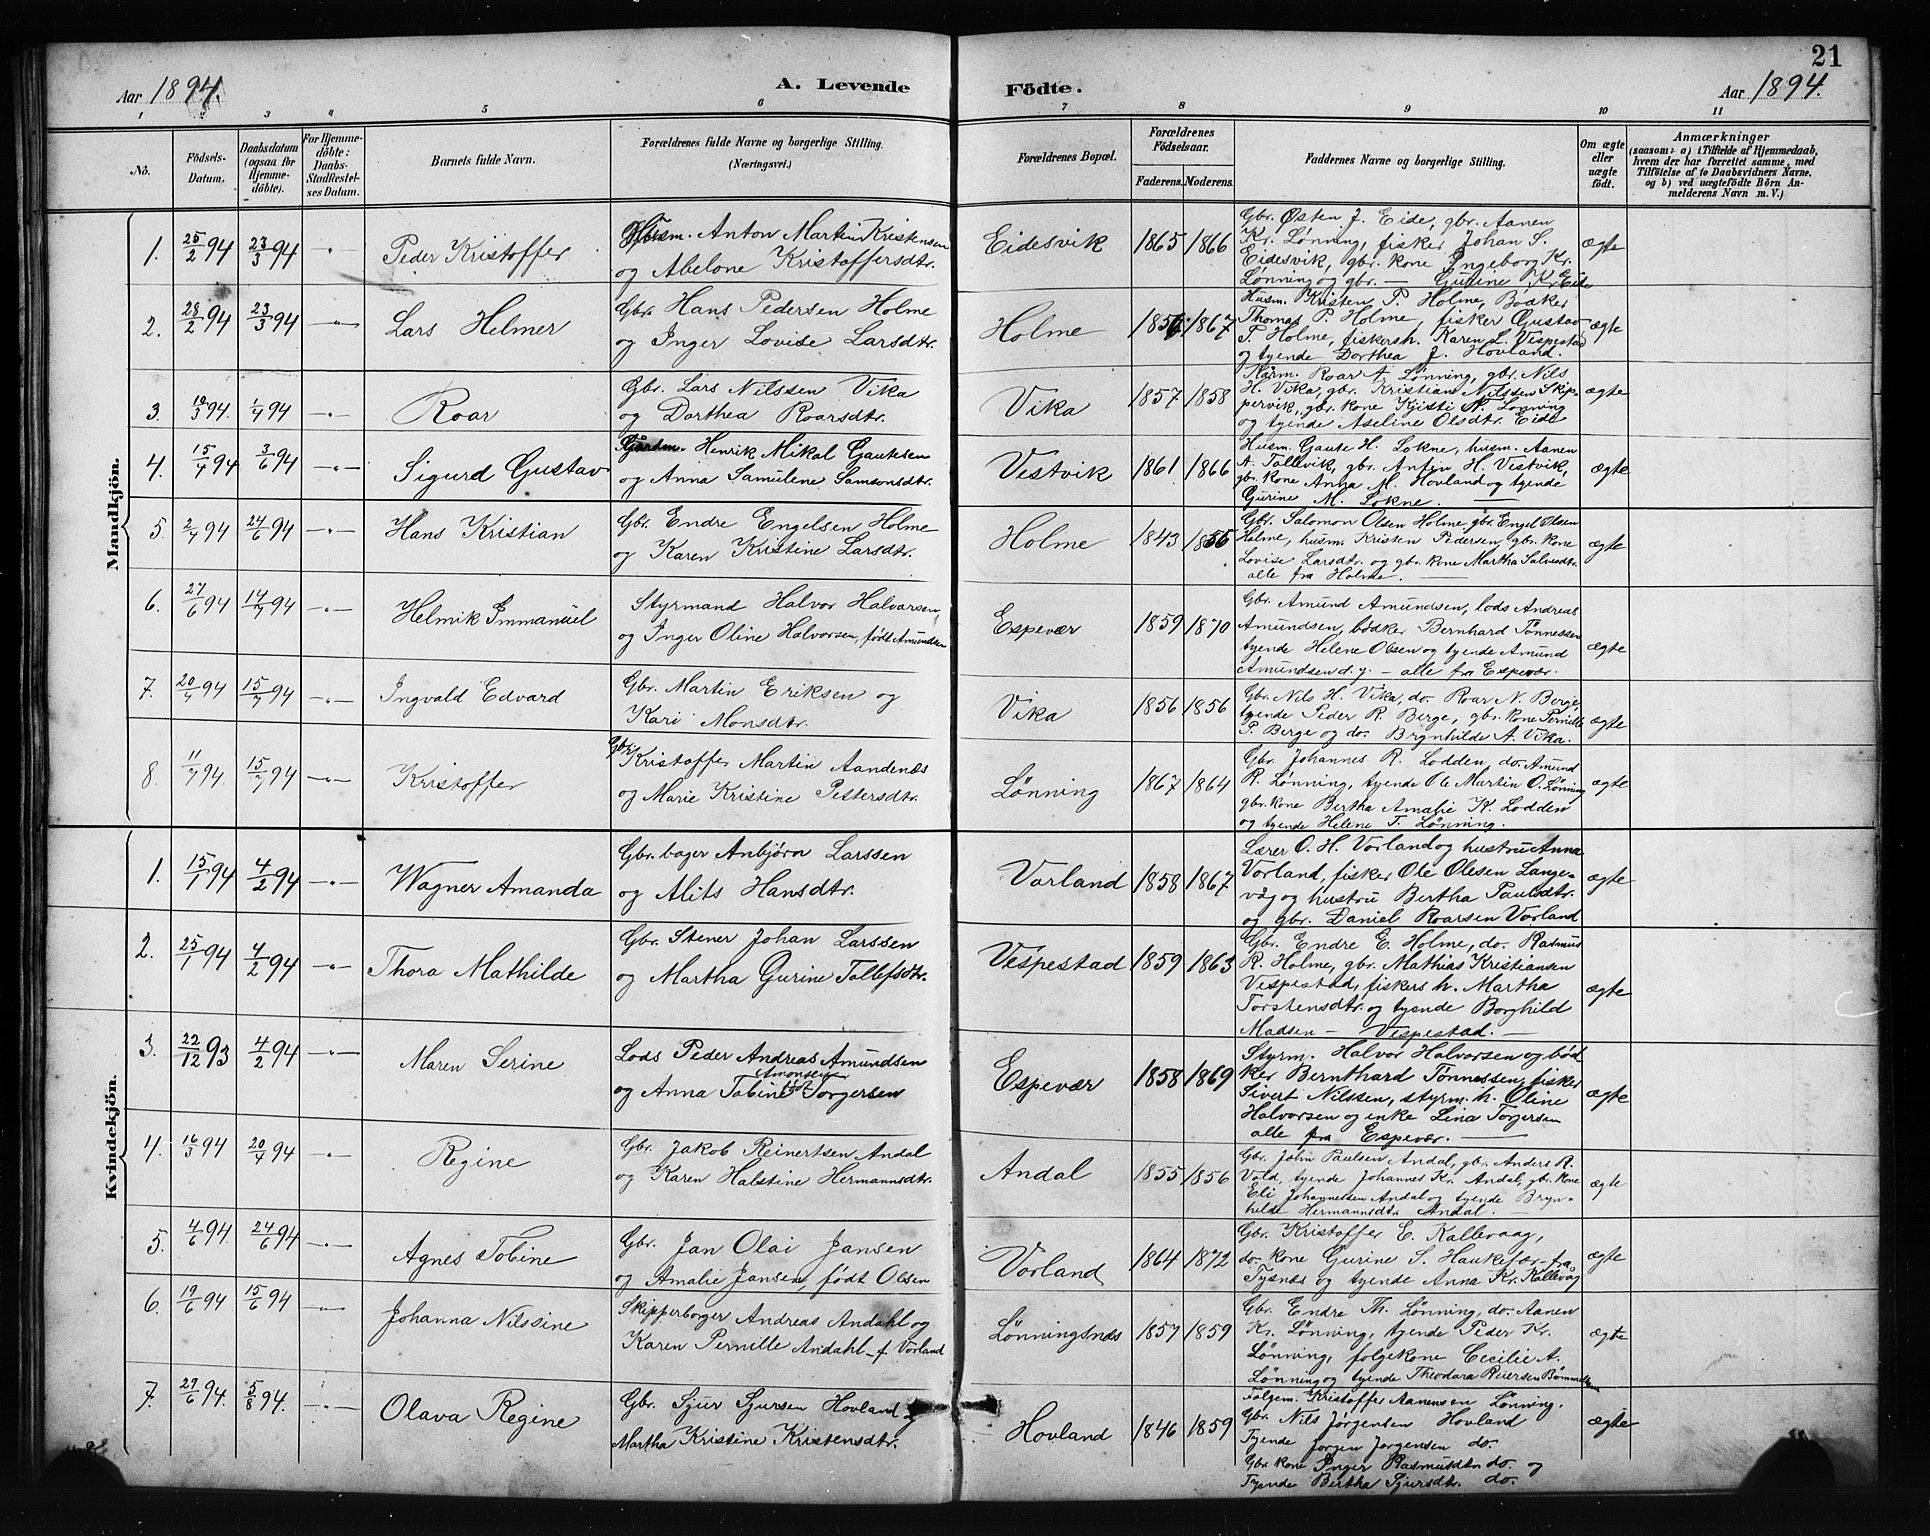 21
Aar 1894.
A. Levende Födte.
Aar 1894.
1 2 3 4 5 6 7 8 9 10 11
No.
Födsels-Datum.
Daabsdatum (ogsaa for Hjemmedöbte).
For Hjemmedöbte: Daabs-Stadfæstelses Datum.
Barnets fulde Navn.
Forældrenes fulde Navne og borgerlige Stilling. (Næringsvei.)
Forældrenes Bopæl.
Forældrenes Födselsaar.
Faderens. Moderens.
Faddernes Navne og borgerlige Stilling.
Om ægte eller uægte födt.
Anmærkninger
(saasom: a) i Tilfælde af Hjemmedaab, hvem der har forrettet samme, med Tilföielse af to Daabsvidners Navne, og b) ved uægtefödte Börn Anmelderens Navn m. V.)
Mandkjön.
1. 25/2 94 23/3 94 —"— Peder Kristoffer
Husm. Anton Martin Kristensen
og Abelone Kristoffersdtr.
Eidesvik 1865 1866
Gbr. Østen J. Eide, gbr. Aanen
Kr. Lønning, fisker Johan S.
Eidesvik, gbr. kone Ingeborg Kr.
Lønning og gbr. — Gurine K. Eide
ægte
2. 28/2 94 23/3 94 —"— Lars Helmer
Gbr. Hans Pedersen Holme
og Inger Lovise Larsdtr.
Holme 1856 1867
Husm. Kristen P. Holme, Bødker
Thomas P. Holme, fisker Gustav
T. Holme, fiskersh. Karen L. Vespestad
og tyende Dorthea J. Hovland.
ægte
3. 10/3 94. 1/4 94 —"— Roar
Gbr. Lars Nilssen Vika
og Dorthea Roarsdtr.
Vika 1857 1858
Kårm. Roar A. Lønning, gbr. Nils
H. Vika, gbr. Kristian Nilssen Skip-
pervik, gbr. kone Kjisti N. Lønning
og tyende Aseline Olsdtr. Eide
ægte
4. 15/4 94 3/6 94 —"— Sigurd Gustav
Gårdm. Henrik Mikal Gautesen
og Anna Samuline Samsonsdtr.
Vestvik 1861 1866
Husm. Gaute H. Lokne, husm. Aanen
A. Tollevik, gbr. Anfin H. Vestvik,
gbr. kone Anna M. Hovland og tyende
Gurine M. Lokne. —
ægte
5. 2/4 94 24/6 94 —"— Hans Kristian
Gbr. Endre Engelsen Holme
og Karen Kristine Larsdtr.
Holme 1843 1856
Gbr. Salomon Olsen Holme, gbr. Engel Olsen
Holme, husm. Kristen Pedersen, gbr. kone
Lovise Larsdtr. og gbr. kone Martha Salvesdtr.
alle fra Holme. —
ægte
6. 27/6 94 14/7 94 —"— Helmik Immanuel
Styrmand Halvor Halvorsen
og Inger Oline Halvorsen, født Amundsen
Espevær 1859 1870
Gbr. Amund Amundsen, lods Andreas
Amundsen, bødker Bernhard Tønnessen
tyende Helene Olsen og tyende Amund
Amundsen d.y. — alle fra Espevær.
ægte
7. 20/4 94 15/7 94 —"— Ingvald Edvard
Gbr. Martin Eriksen og
Kari Monsdtr.
Vika 1856 1856
Gbr. Nils H. Vika, do. Roar N. Berge,
tyende Peder R. Berge, gbr. kone Pernille
P. Berge og do. Brynhilde A. Vika.
ægte
8. 11/7 94. 15/7 94 —"— Kristoffer
Gbr. Kristoffer Martin Aandenæs
og Marie Kristine Pettersdtr.
Lønning 1867 1864
Gbr. Johannes R. Lodden, do. Amund
R. Lønning, tyende Ole Martin O. Lønning
gbr. kone Bertha Amalie K. Lodden
og tyende Helene T. Lønning.
ægte
Kvindekjön.
1. 15/1 94 4/2 94 —"— Wagner Amanda
Gbr. bager Anbjørn Larssen
og Alits Hansdtr.
Vorland 1858 1867
Lærer O. H. Vorland og hustru Anna
Vorland, fisker Ole Olesen Lange-
våg og hustru Bertha Paulsdtr.
og gbr. Daniel Roarsen Vorland
ægte
2. 25/1 94 4/2 94 —"— Thora Mathilde
Gbr. Stener Johan Larssen
og Martha Gurine Tollefsdtr.
Vespestad 1859 1863
Gbr. Endre E. Holme, do. Rasmus
R. Holme, gbr. Mathias Kristiansen
Vespestad, fiskers h. Martha
Torstensdtr. og tyende Borghild
Madsen — Vespestad. —
ægte
3. 22/12 93 4/2 94 —"— Maren Serine
Lods Peder Andreas Amundsen
og Anna Tobine Amonsen født Torgersen
Espevær 1858 1869
Styrm. Halvor Halvorsen og bød
ker Bernthard Tønnessen, fisker
Sivert Nilssen, styrm. h. Oline
Halvorsen og enke Lina Torgersen
alle fra Espevær. —
ægte
4. 16/3 94 20/4 94 —"— Regine
Gbr. Jakob Reinertsen Andal
og Karen Halstine Hermannsdtr.
Andal 1855 1856
Gbr. John Paulsen Andal, gbr. Anders R.
Vold, tyende Johannes Kr. Andal, gbr. kone
Eli Johannessen Andal og tyende Bryn-
hilde Hermannsdtr. Andal. —
ægte
5. 4/6 94. 24/6 94 —"— Agnes Tobine
Gbr. Jan Olai Jansen
og Amalie Jansen, født Olsen
Vorland 1864 1872
Gbr. Kristoffer E. Kallevaag,
do. kone Gurine S. Haukefær fra
Tysnæs og tyende Anna Kr. Kallevåg
ægte
6. 19/6 94 15/6 94 —"— Johanna Nilssine
Skipperborger Andreas Andahl og
Karen Pernille Andahl f. Vorland
Lønningsnæs 1857 1859
Gbr. Endre Th. Lønning, do. Aanen
Kr. Lønning, tyende Peder Kr.
Lønning, folgekone Cecilie A.
Lønning og tyende Theodara Riversen Bømmelhavn
ægte
7. 29/6 94. 5/8 94. —"— Olava Regine
Gbr. Sjur Sjursen Hovland og
Martha Kristine Kristensdtr.
Hovland 1846 1859
Følgem. Kristoffer Aanensen Lønning.
Gbr. Nils Jørgensen Hovland
Tyende Jørgen Jørgensen do.
Gbr. kone Inger Rasmusdtr. do. og
Tyende Bertha Sjursdtr. do.
ægte